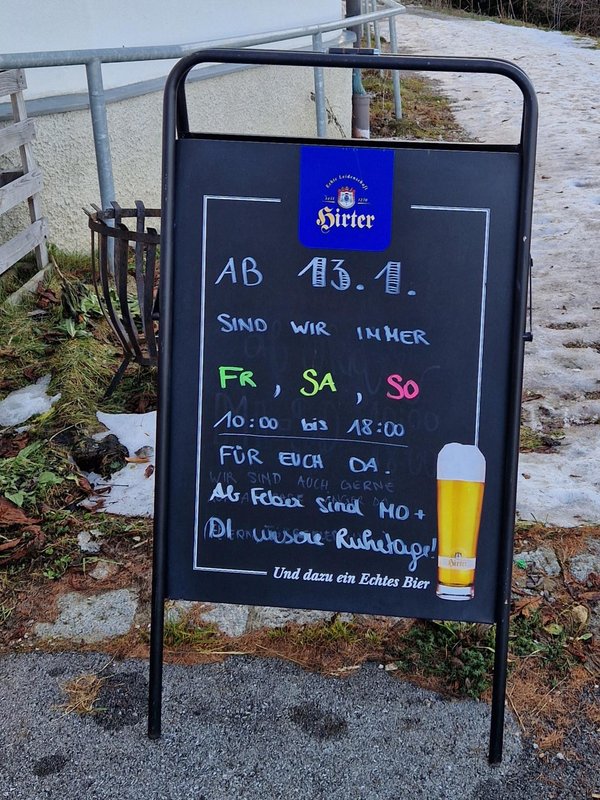 Echte Leidenschaft
seit 1270
Hirter
AB 13.1.
SIND WIR IMMER
FR, SA, SO
10:00 bis 18:00
FÜR EUCH DA.
WIR SIND AUCH GERNE
Ab Feber sind MO +
DI unsere Ruhetage!
Und dazu ein Echtes Bier
Hirter